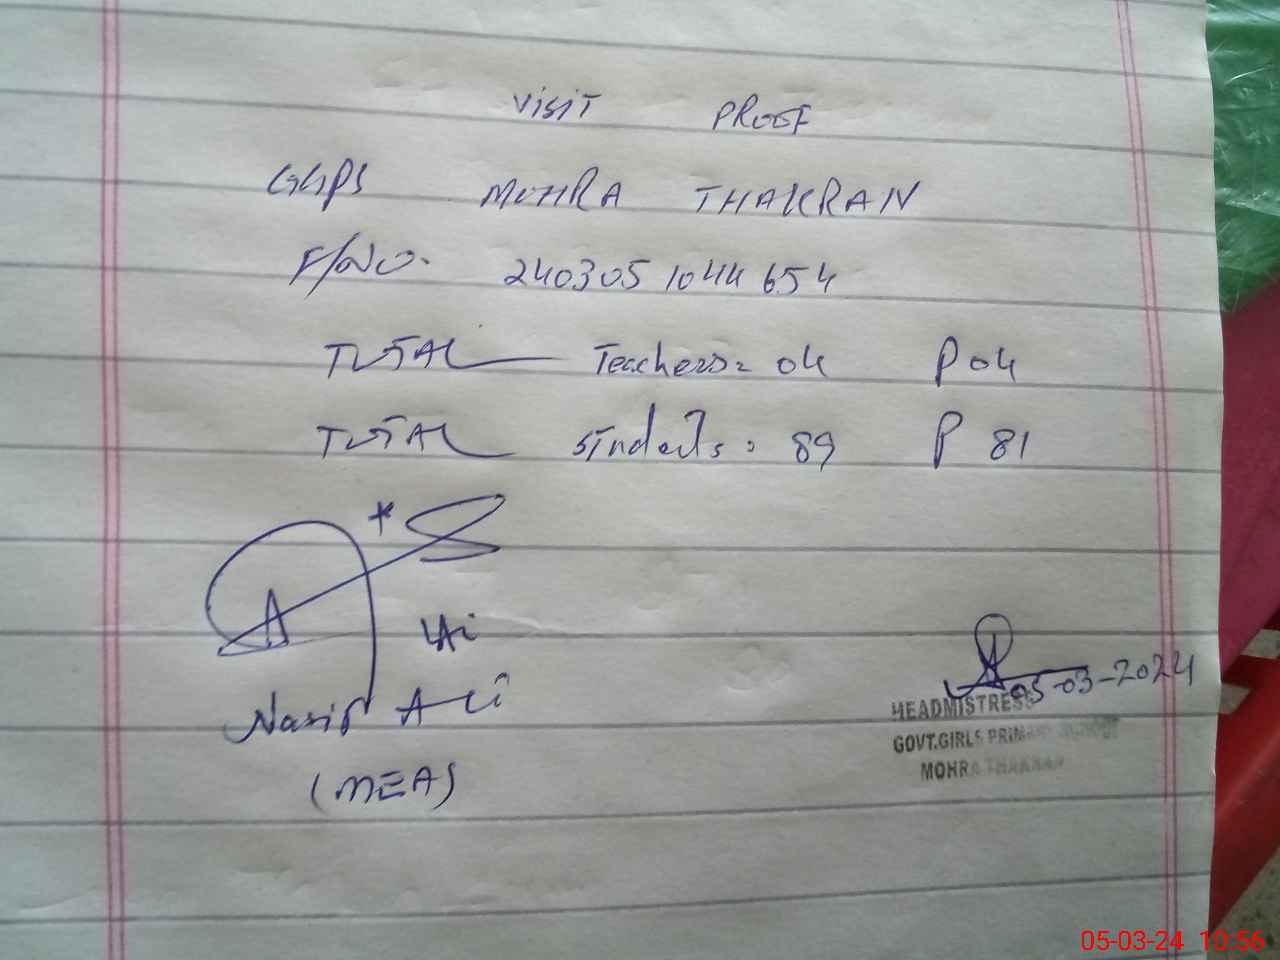 VISIT PROOF
GGPS MOHRA THAKRAN
F/NO. 240305 1044 654
TOTAL Teachers= 04 P 04
TOTAL Students: 89 P 81
Nasir Ali
(MEA)
05-03-2024
HEADMISTRESS
GOVT.GIRLS PRIMARY SCHOOL
MOHRA THAKRAN
05-03-24 10:56